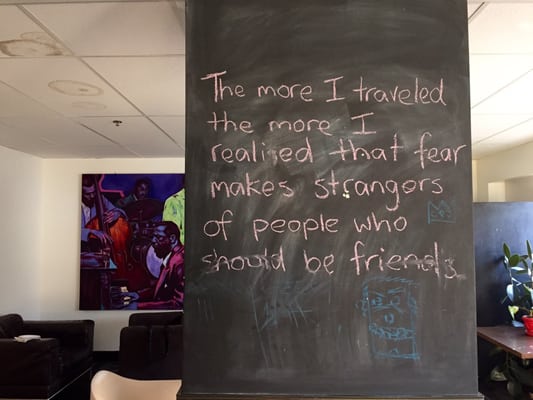 The more I traveled
the more I
realised that fear
makes strangers
of people who
should be friends.